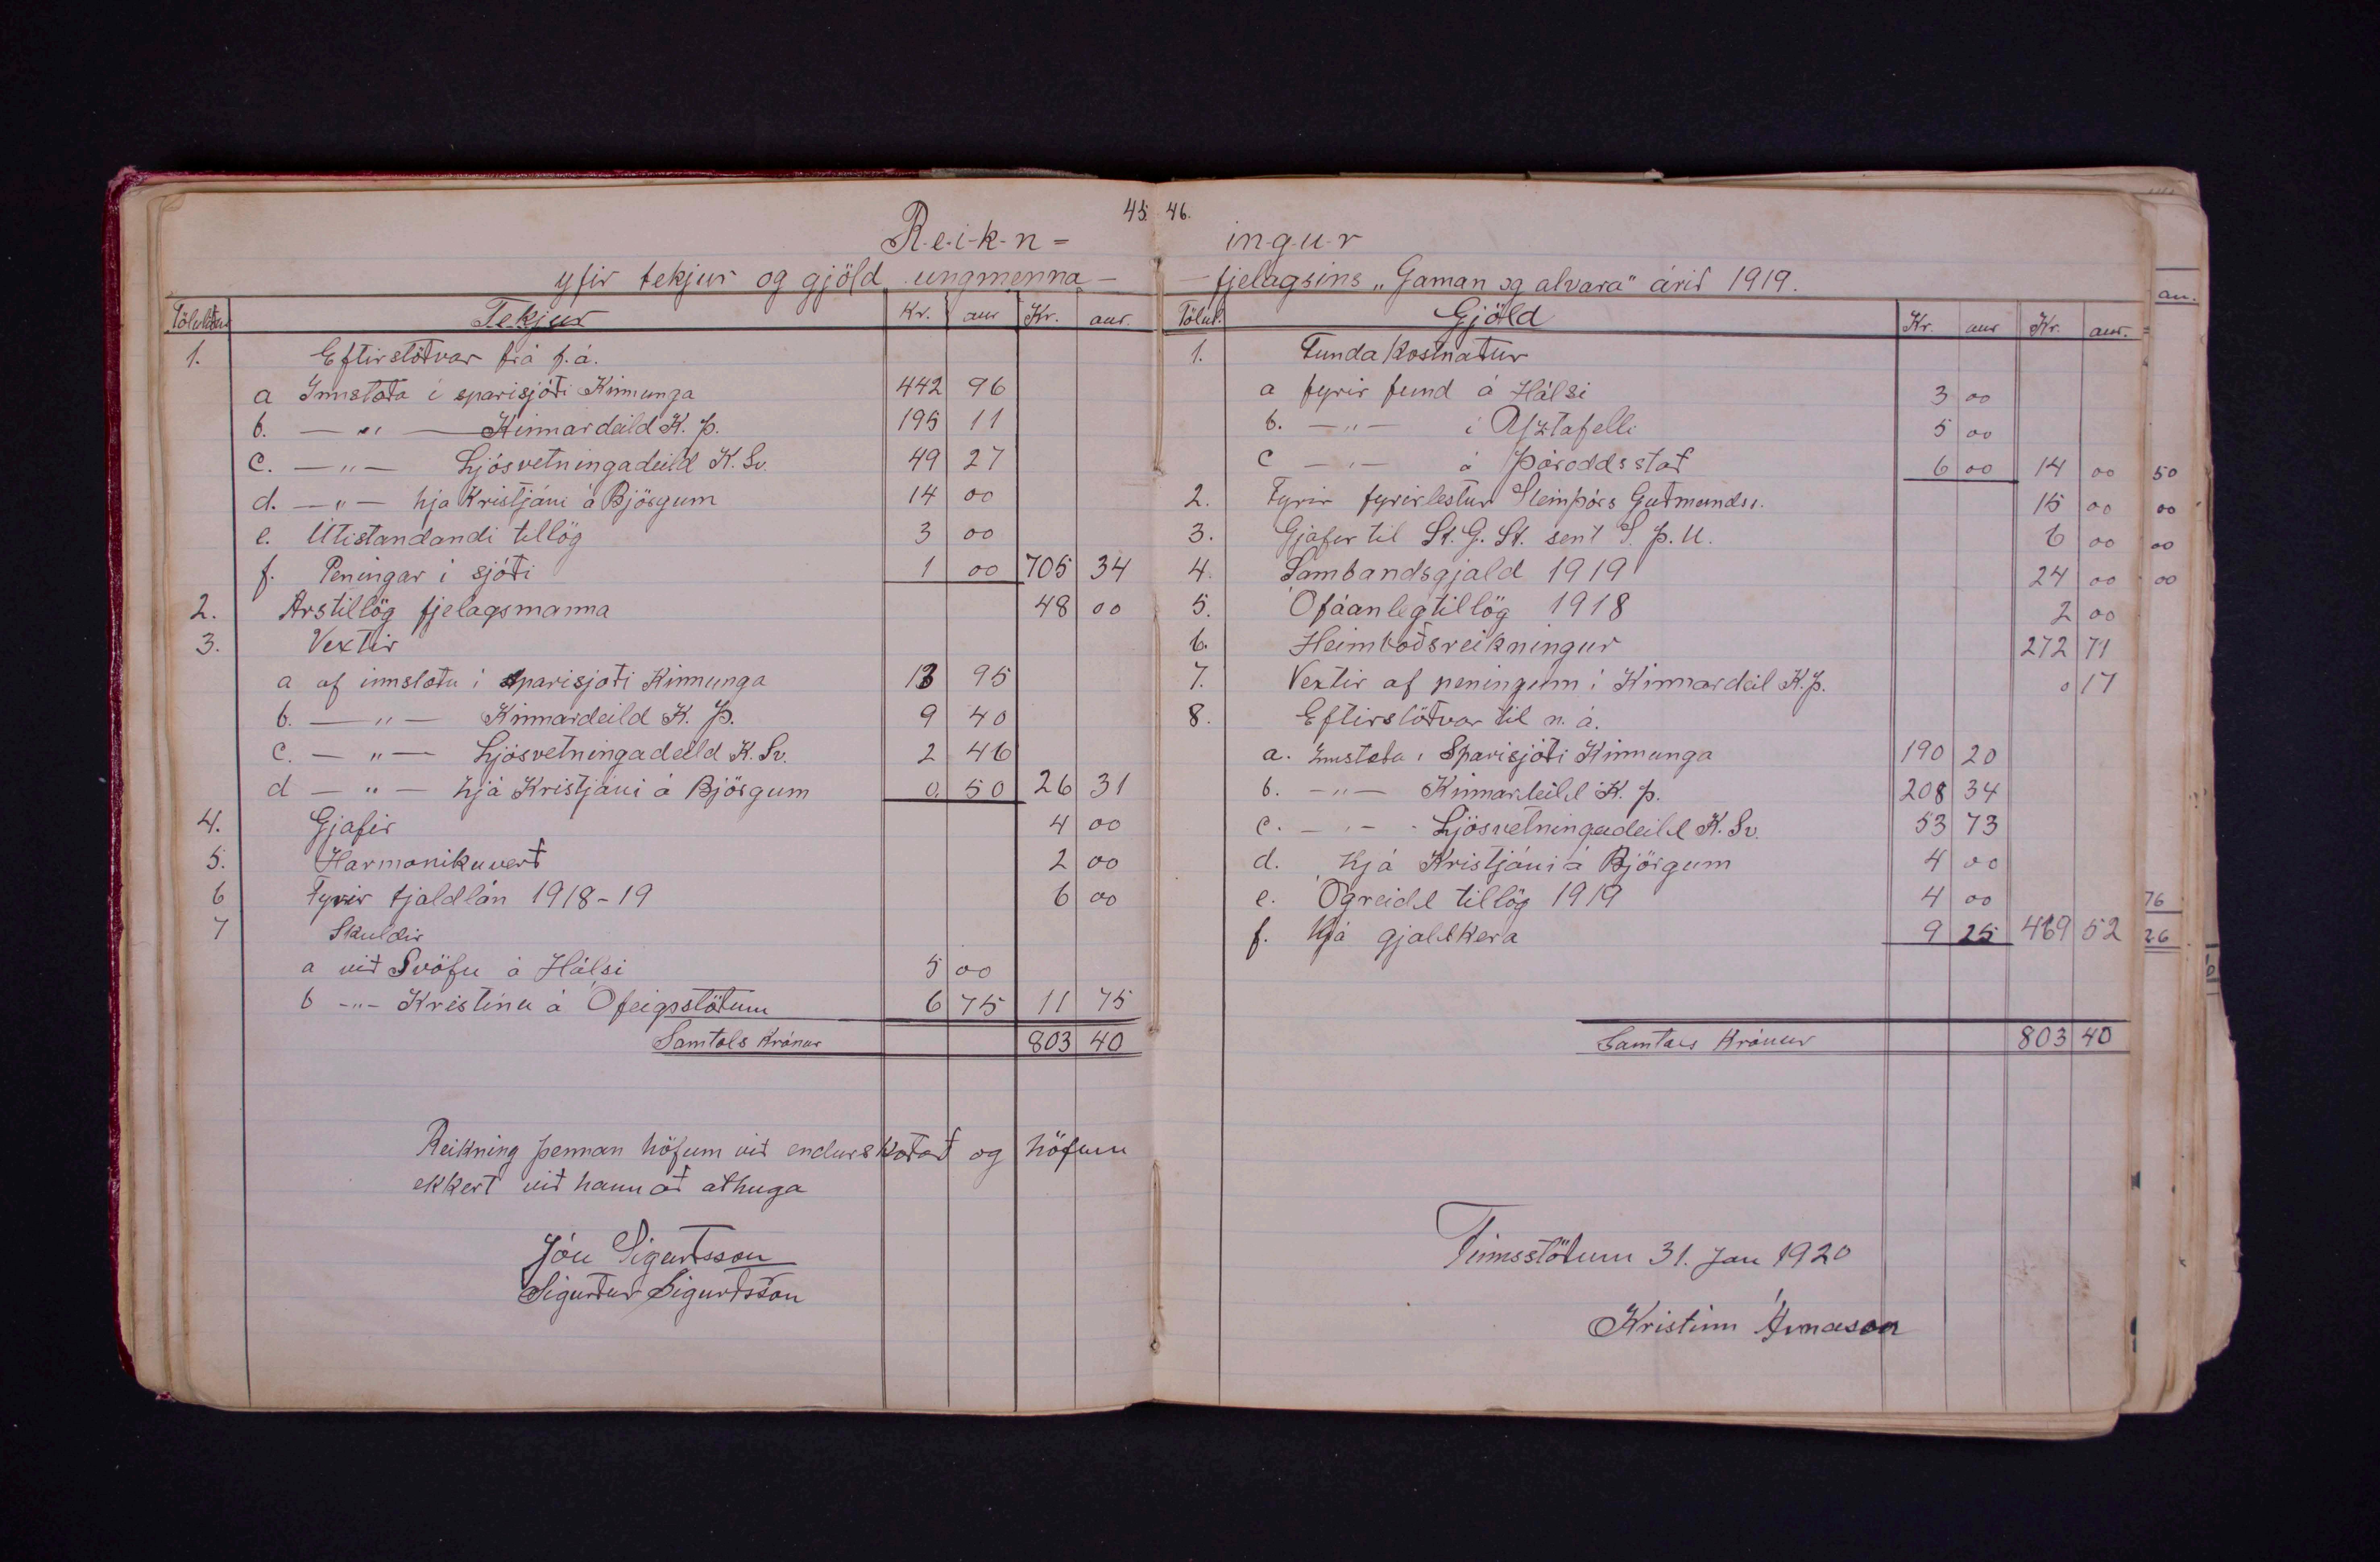 45
R-e-i-k-n=
yfir tekjur og gjöld ungmenna-
Töluliður Tekjur Kr. aur Kr. aur.
1. Eftirstöðvar frá f.á.
a Innstæða í sparisjóði Kinnunga 442 96
b. — „ — Kinnardeild K. Þ. 195 11
c. — „ — Ljósvetningadeild K. Sv. 49 27
d. — „ — hjá Kristjáni á Björgum 14 00
e. Útistandandi tillög 3 00
f. Peningar í sjóði 1 00 705 34
2. Árstillög fjelagsmanna 48 00
3. Vextir
a af innstæðu í sparisjóði Kinnunga 13 95
b. — „ — Kinnardeild K. Þ. 9 40
c. — „ — Ljósvetningadeild K. Sv. 2 46
d — „ — hjá Kristjáni á Björgum 0. 50 26 31
4. Gjafir 4 00
5. Harmonikuverð 2 00
6 Fyrir tjaldlán 1918-19 6 00
7 Skuldir
a við Svöfu á Hálsi 5 00
b -„- Kristínu á Ófeigsstöðum 6 75 11 75
Samtals Krónur 803 40
Reikning þennan höfum við endurskoðað og höfum
ekkert við hann að athuga
Jón Sigurðsson
Sigurður Sigurðsson
46.
in-g-u-r
-fjelagsins „Gaman og alvara" árið 1919.
Tölul. Gjöld Kr. aur Kr. aur.
1. Fundakostnaður
a fyrir fund á Hálsi 3 00
b. — „ — í Yztafelli 5 00
c — „ — á Þóroddsstað 6 00 14 00
2. Fyrir fyrirlestur Steinþórs Guðmundss. 15 00
3. Gjafir til St. G. St. sent S. Þ. U. 6 00
4. Sambandsgjald 1919 24 00
5. Ófáanleg tillög 1918 2 00
6. Heimboðsreikningur 272 71
7. Vextir af peningum í Kinnardeil K.Þ. 0 17
8. Eftirstöðvar til n. á.
a. Innstæða í Sparisjóði Kinnunga 190 20
b. — „ — Kinnardeild K. Þ. 208 34
c. — „ — Ljósvetningadeild K. Sv. 53 73
d. hjá Kristjáni á Björgum 4 00
e. Ógreidd tillög 1919 4 00
f. hjá gjaldkera 9 25 469 52
Samtals Krónur 803 40
Finnsstöðum 31. Jan 1920
Kristinn Árnason
au.
50
00
00
00
76
26